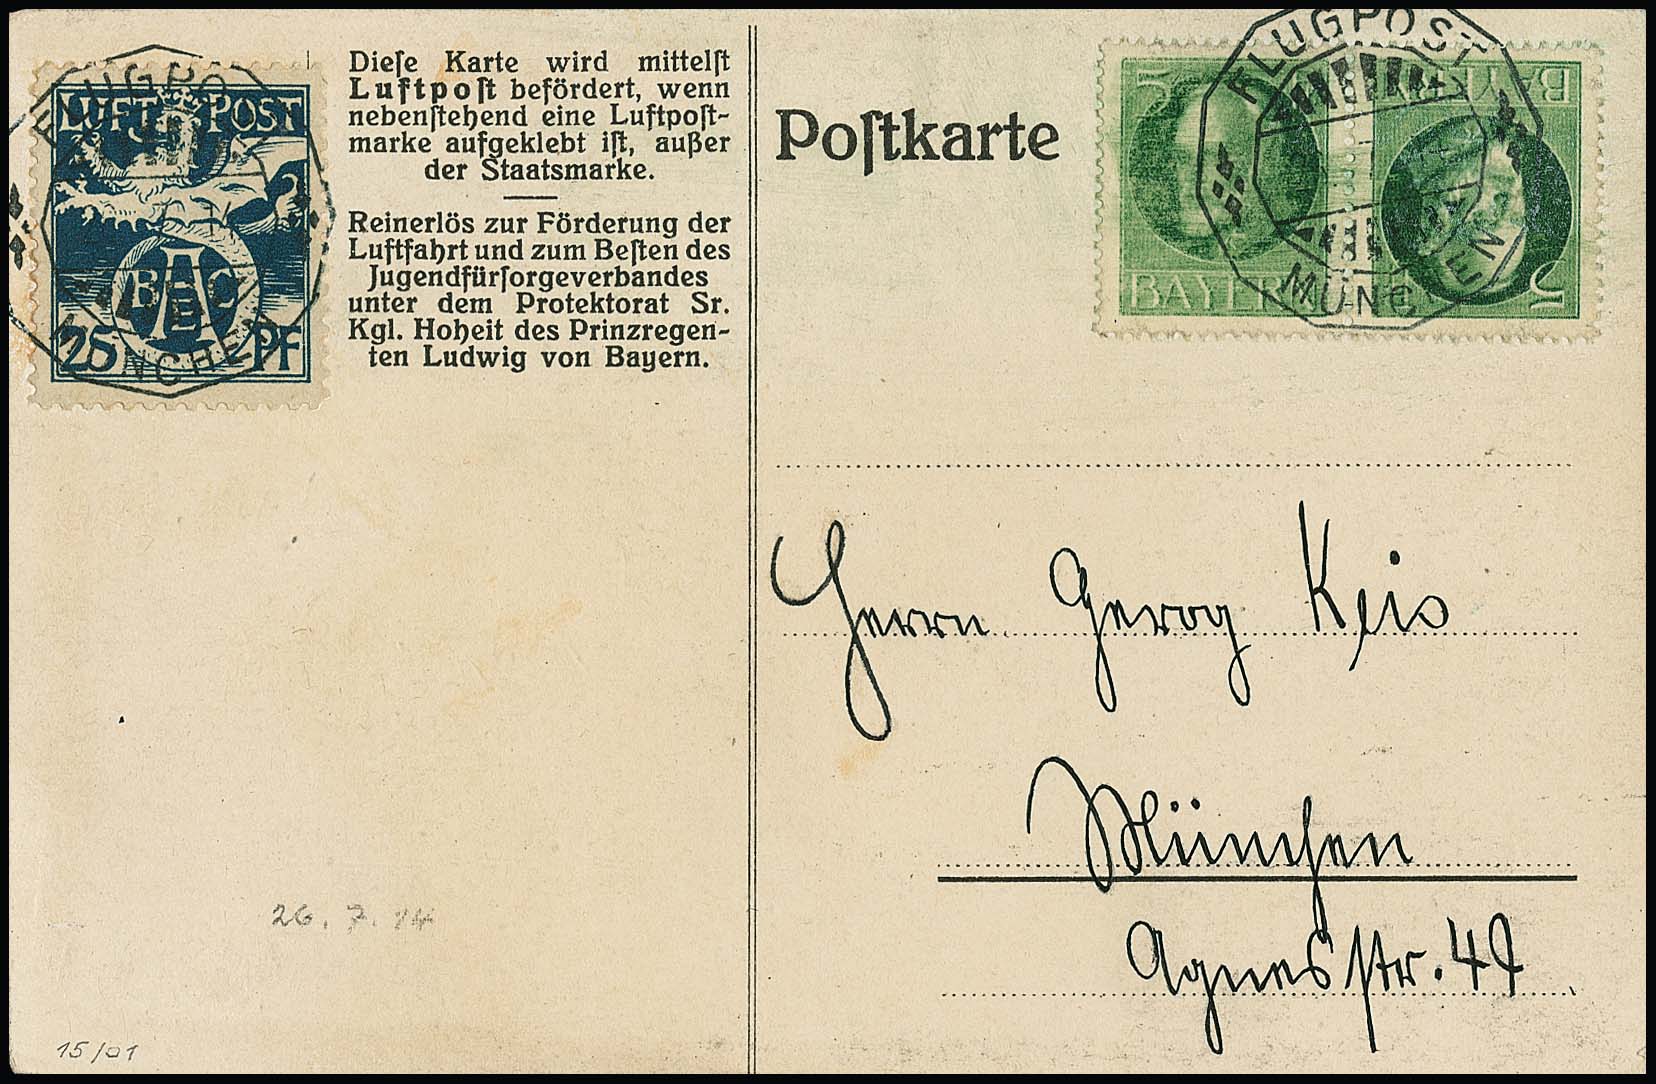 LUFT POST
BAEC
25 PF
FLUGPO
NCHEN
Dieſe Karte wird mittelſt
Luftpoſt befördert, wenn
nebenſtehend eine Luftpoſt-
marke aufgeklebt iſt, außer
der Staatsmarke.
Reinerlös zur Förderung der
Luftfahrt und zum Beſten des
Jugendfürſorgeverbandes
unter dem Protektorat Sr.
Kgl. Hoheit des Prinzregen-
ten Ludwig von Bayern.
Poſtkarte
5
BAYERN
5
BAYERN
FLUGPOST
MÜNCHEN
Herrn Georg Keis
München
Agnesstr. 49
26.7.14
15/01